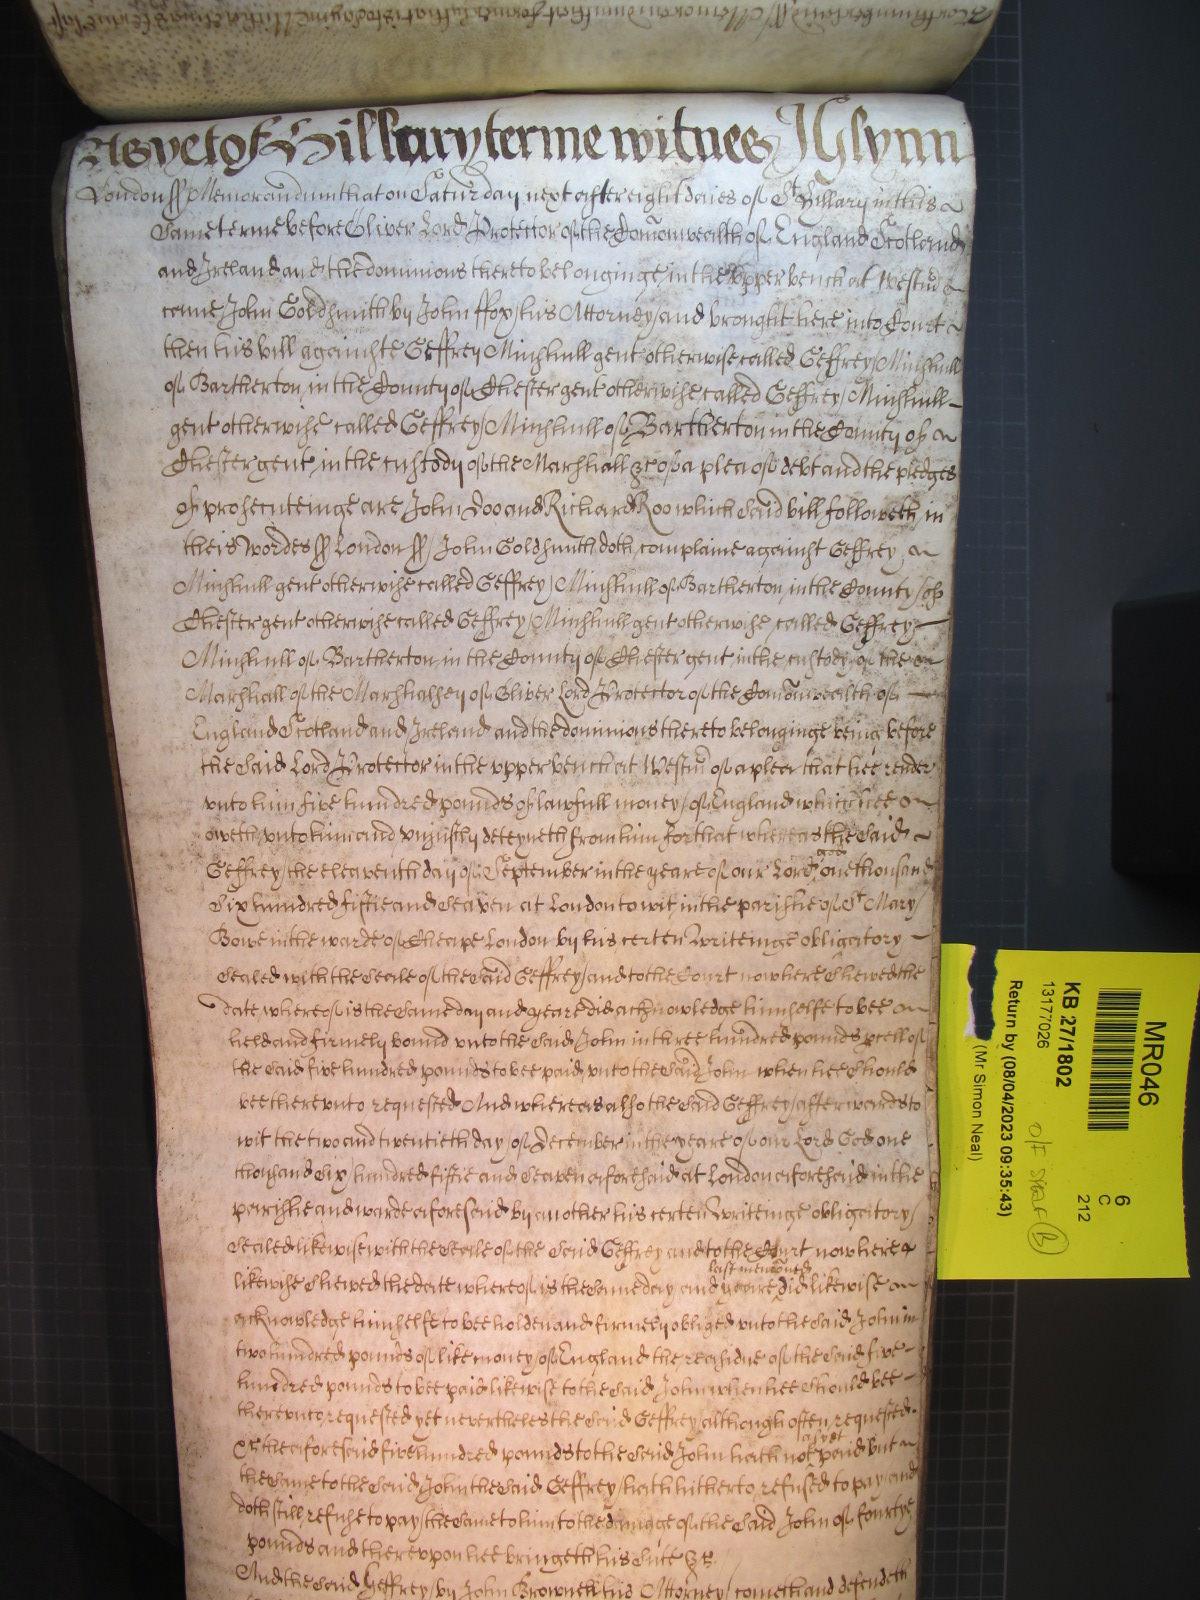 As yet of Hillary terme witnes J Glynn
London ss Memorandum that on Saturday next after eight daies of St Hillary in this
same terme before Oliver Lord Protector of the Comonwealth of England Scotland
and Ireland and the dominions thereto belonginge in the upper bench at Westm
came John Goldsmith by John ffox his Attorney and brought here into Court
then his bill againste Geffrey Minshull gent otherwise called Geffrey Minshull
of Bartherton in the County of Chester gent otherwise called Geffrey Minshull
gent otherwise called Geffrey Minshull of Bartherton in the County of
Chester gent in the custody of the Marshall &c of a plea of debt and the pledges
of prosecuteinge are John Doo and Richard Roo which said bill followeth in
theis wordes ss London ss John Goldsmith doth complaine against Geffrey
Minshull gent otherwise called Geffrey Minshull of Bartherton in the County of
Chester gent otherwise called Geffrey Minshull gent otherwise called Geffrey
Minshull of Bartherton in the County of Chester gent in the custody of the
Marshall of the Marshalsey of Oliver Lord Protector of the Comonwealth of
England Scotland and Ireland and the dominions thereto belonginge being before
the said Lord Protector in the upper bench at Westm of a plea that hee render
unto him five hundred pounds of lawfull money of England which hee
oweth unto him and unjustly deteyneth from him for that whereas the said
Geffrey the eleaventh day of September in the yeare of our Lord god one thousand
six hundred fiftie and seaven at London to wit in the parishe of St Mary
Bowe in the warde of Cheape London by his certen writeinge obligatory
sealed with the seale of the said Geffrey and to the Court now here shewed the
date whereof is the same day and yeare did acknowledge himselfe to bee
held and firmely bound unto the said John in three hundred pounds pcell of
the said five hundred pounds to bee paid unto the said John when hee should
bee thereunto requested And whereas also the said Geffrey afterwards to
wit the two and twentieth day of December in the yeare of our Lord God one
thousand six hundred fiftie and seaven aforesaid at London aforesaid in the
parishe and warde aforesaid by another his certen writeinge obligatory
sealed likewise with the seale of the said Geffrey and to the Court now here
likewise shewed the date whereof is the same day and yeare last menconed did likewise
acknowledge himselfe to bee holden and firmely obliged unto the said John in
two hundred pounds of like money of England the residue of the said five
hundred pounds to bee paid likewise to the said John when hee should bee
thereunto requested yet nevertheles the said Geffrey although often requested
&c the aforesaid five hundred pounds to the said John hath not as yet paid but
the same to the said John the said Geffrey hath hitherto refused to pay and
doth still refuse to pay the same to him to the damage of the said John of fourtye
pounds and thereupon hee bringeth his suite &c
And the said Geffrey by John Brownell his Attorney cometh and defendeth
MR046
KB 27/1802
13177026
6
C
212
Return by (08/04/2023 09:35:43)
(Mr Simon Neal)